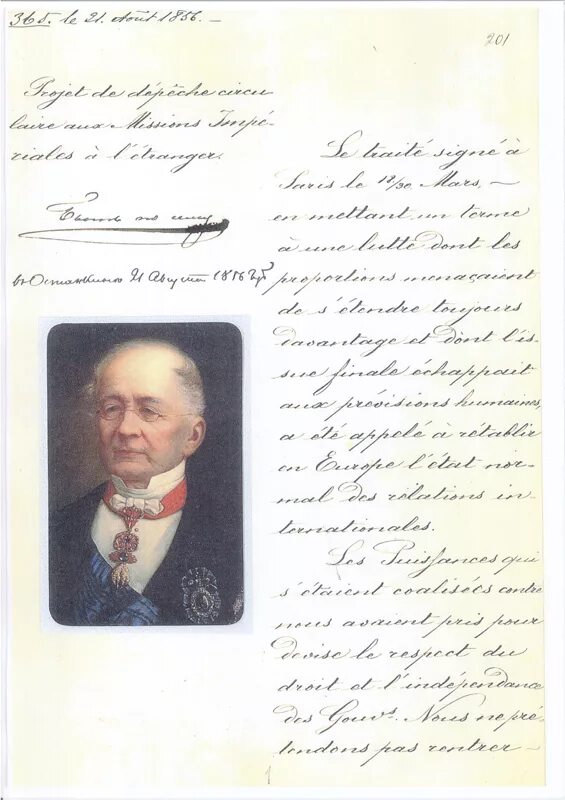 365. le 21. Août 1856.—
201
Projet de dépêche circu
laire aux Missions Impé-
riales à l'étranger.
Быть по сему
въ Останкино 21 Августа 1856
Le traité signé à
Paris le 18/30 Mars, —
en mettant un terme
à une lutte dont les
proportions menaçaient
de s'étendre toujours
davantage et dont l'is-
sue finale échappait
aux prévisions humaines,
a été appelé à rétablir
en Europe l'état nor-
mal des rélations in-
ternationales.
Les Puissances qui
s'étaient coalisées contre
nous avaient pris pour
devise le respect du
droit et l'indépendance
des Gouvs. Nous ne pré-
tendons pas rentrer —